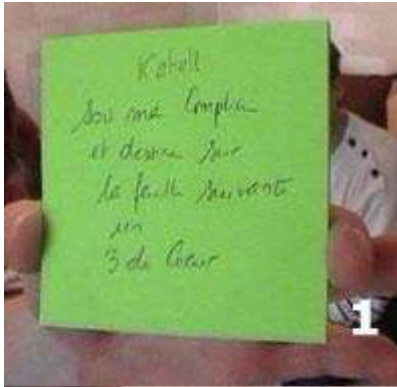 Katell
Sois ma Complice
et dessine sur
la feuille suivante
un
3 de Coeur
1